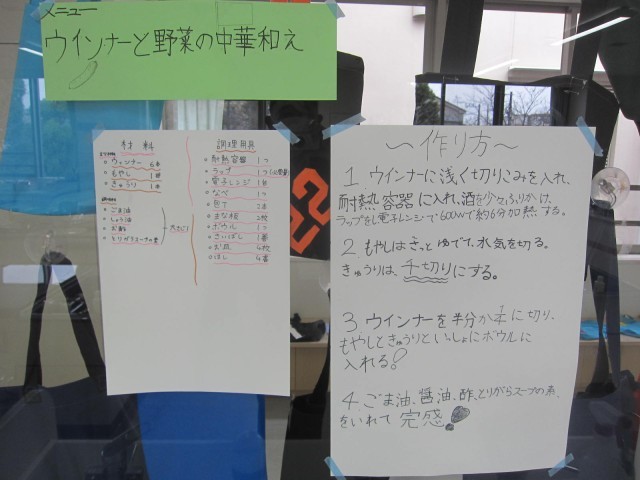 メニュー
ウインナーと野菜の中華和え
材料
ウィンナー 6本
もやし 1袋
きゅうり 1本
ごま油
しょう油
お酢
とりがらスープの素
調理用具
耐熱容器 1つ
ラップ 1つ
電子レンジ 1台
なべ 1つ
包丁 2本
まな板 2枚
ボウル 1つ
さいばし 1膳
お皿 4枚
はし 4膳
〜作り方〜
1. ウインナーに浅く切りこみを入れ、
耐熱容器に入れ、酒を少々ふりかけ、
ラップをし電子レンジで600wで約6分加熱する。
2 もやしはさっとゆでて、水気を切る。
きゅうりは、千切りにする。
3 ウインナーを半分か に切り、
もやしときゅうりといっしょにボウルに
入れる!
4. ごま油、醤油、酢、とりがらスープの素、
をいれて 完感!